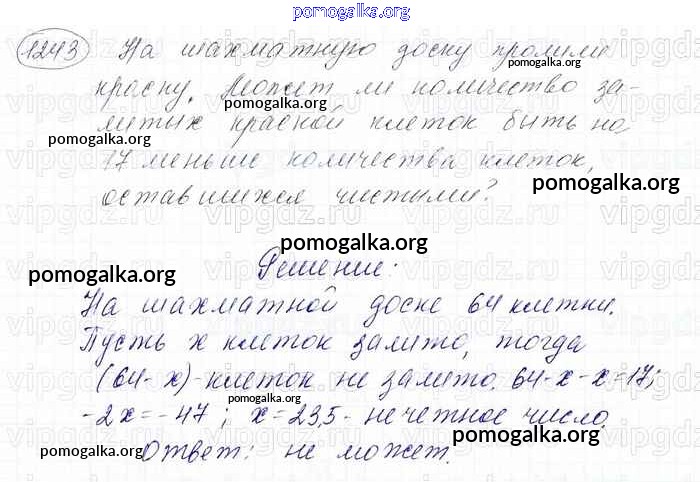 pomogalka.org
1243 На шахматную доску пролили
pomogalka.org
краску. Может ли количество за-
pomogalka.org
литых краской клеток быть на
pomogalka.org
17 меньше количества клеток,
pomogalka.org
оставшихся чистыми?
pomogalka.org
pomogalka.org
Решение:
pomogalka.org
На шахматной доске 64 клетки.
pomogalka.org
Пусть x клеток залито, тогда
(64-x)-клеток не залито. 64-x-x=17;
pomogalka.org
-2x=-47; x=23,5-нечетное число.
pomogalka.org
Ответ: не может.
pomogalka.org
pomogalka.org